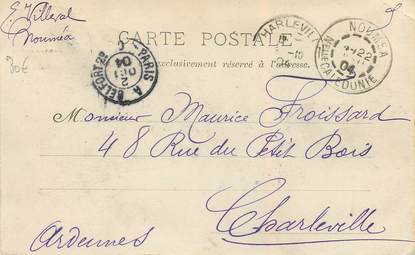 E. Villeval
Nouméa
30€
CARTE POSTALE
exclusivement réservé à l'adresse.
CHARLEVILLE
-10
04
NOUMÉA
22
04
NLLE CALÉDONIE
PARIS A BELFORT 2°
2
04
Monsieur Maurice Froissard
48 Rue du Petit Bois
Charleville
Ardennes